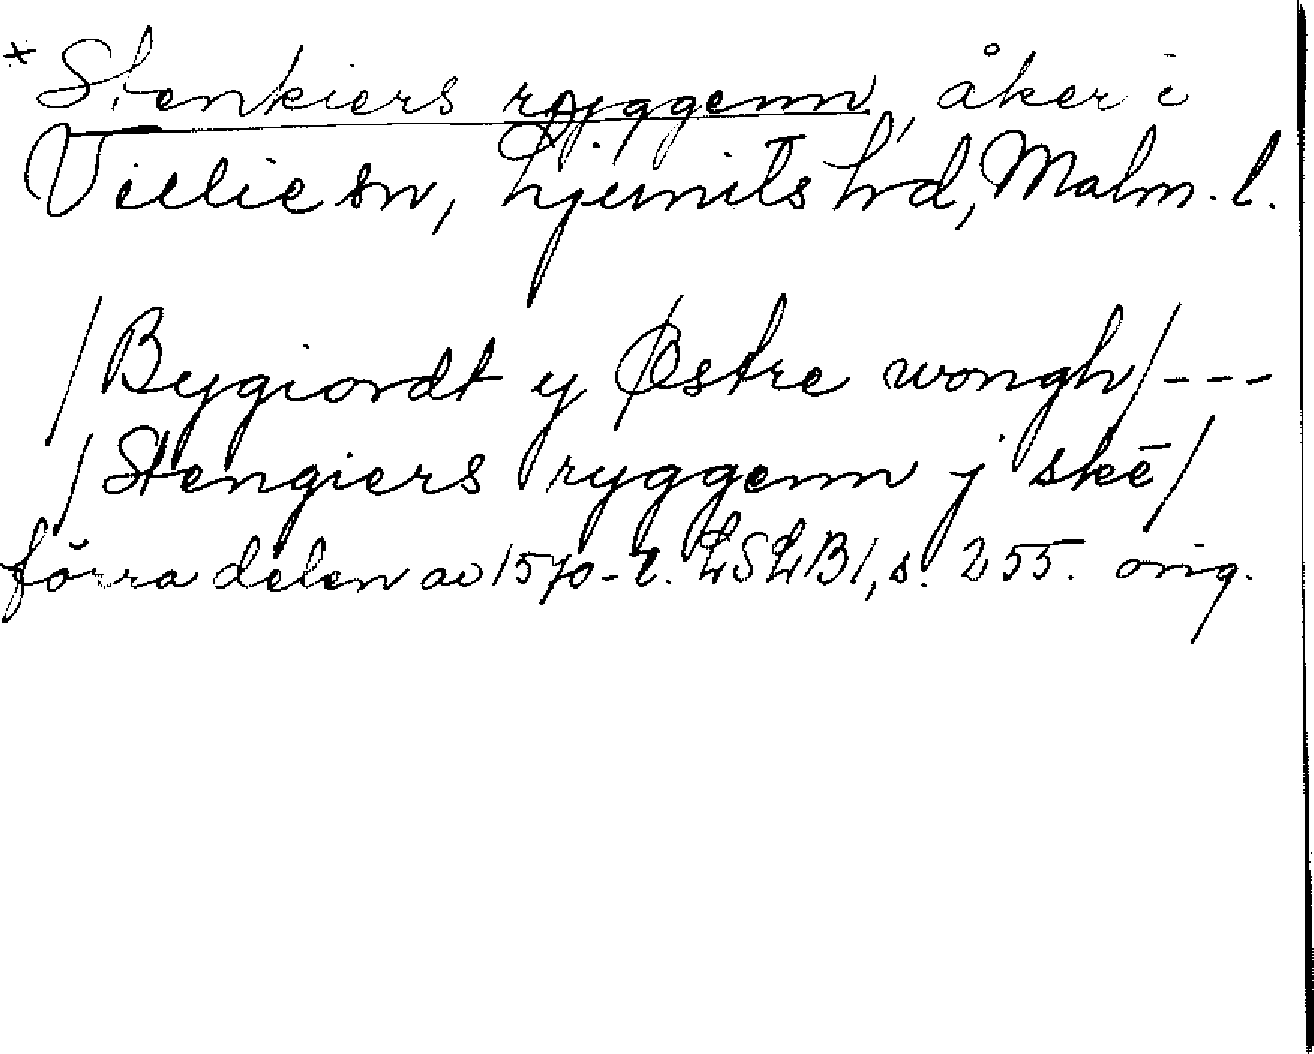 * Stenkiers ryggenn, åker i
Villie sn, Ljunits hd, Malm. l.
/Bygiordt y Østre wongh/ - - -
/Stengiers ryggenn j skē/
förra delen av 1570-t. LSLB1, s. 255. orig.